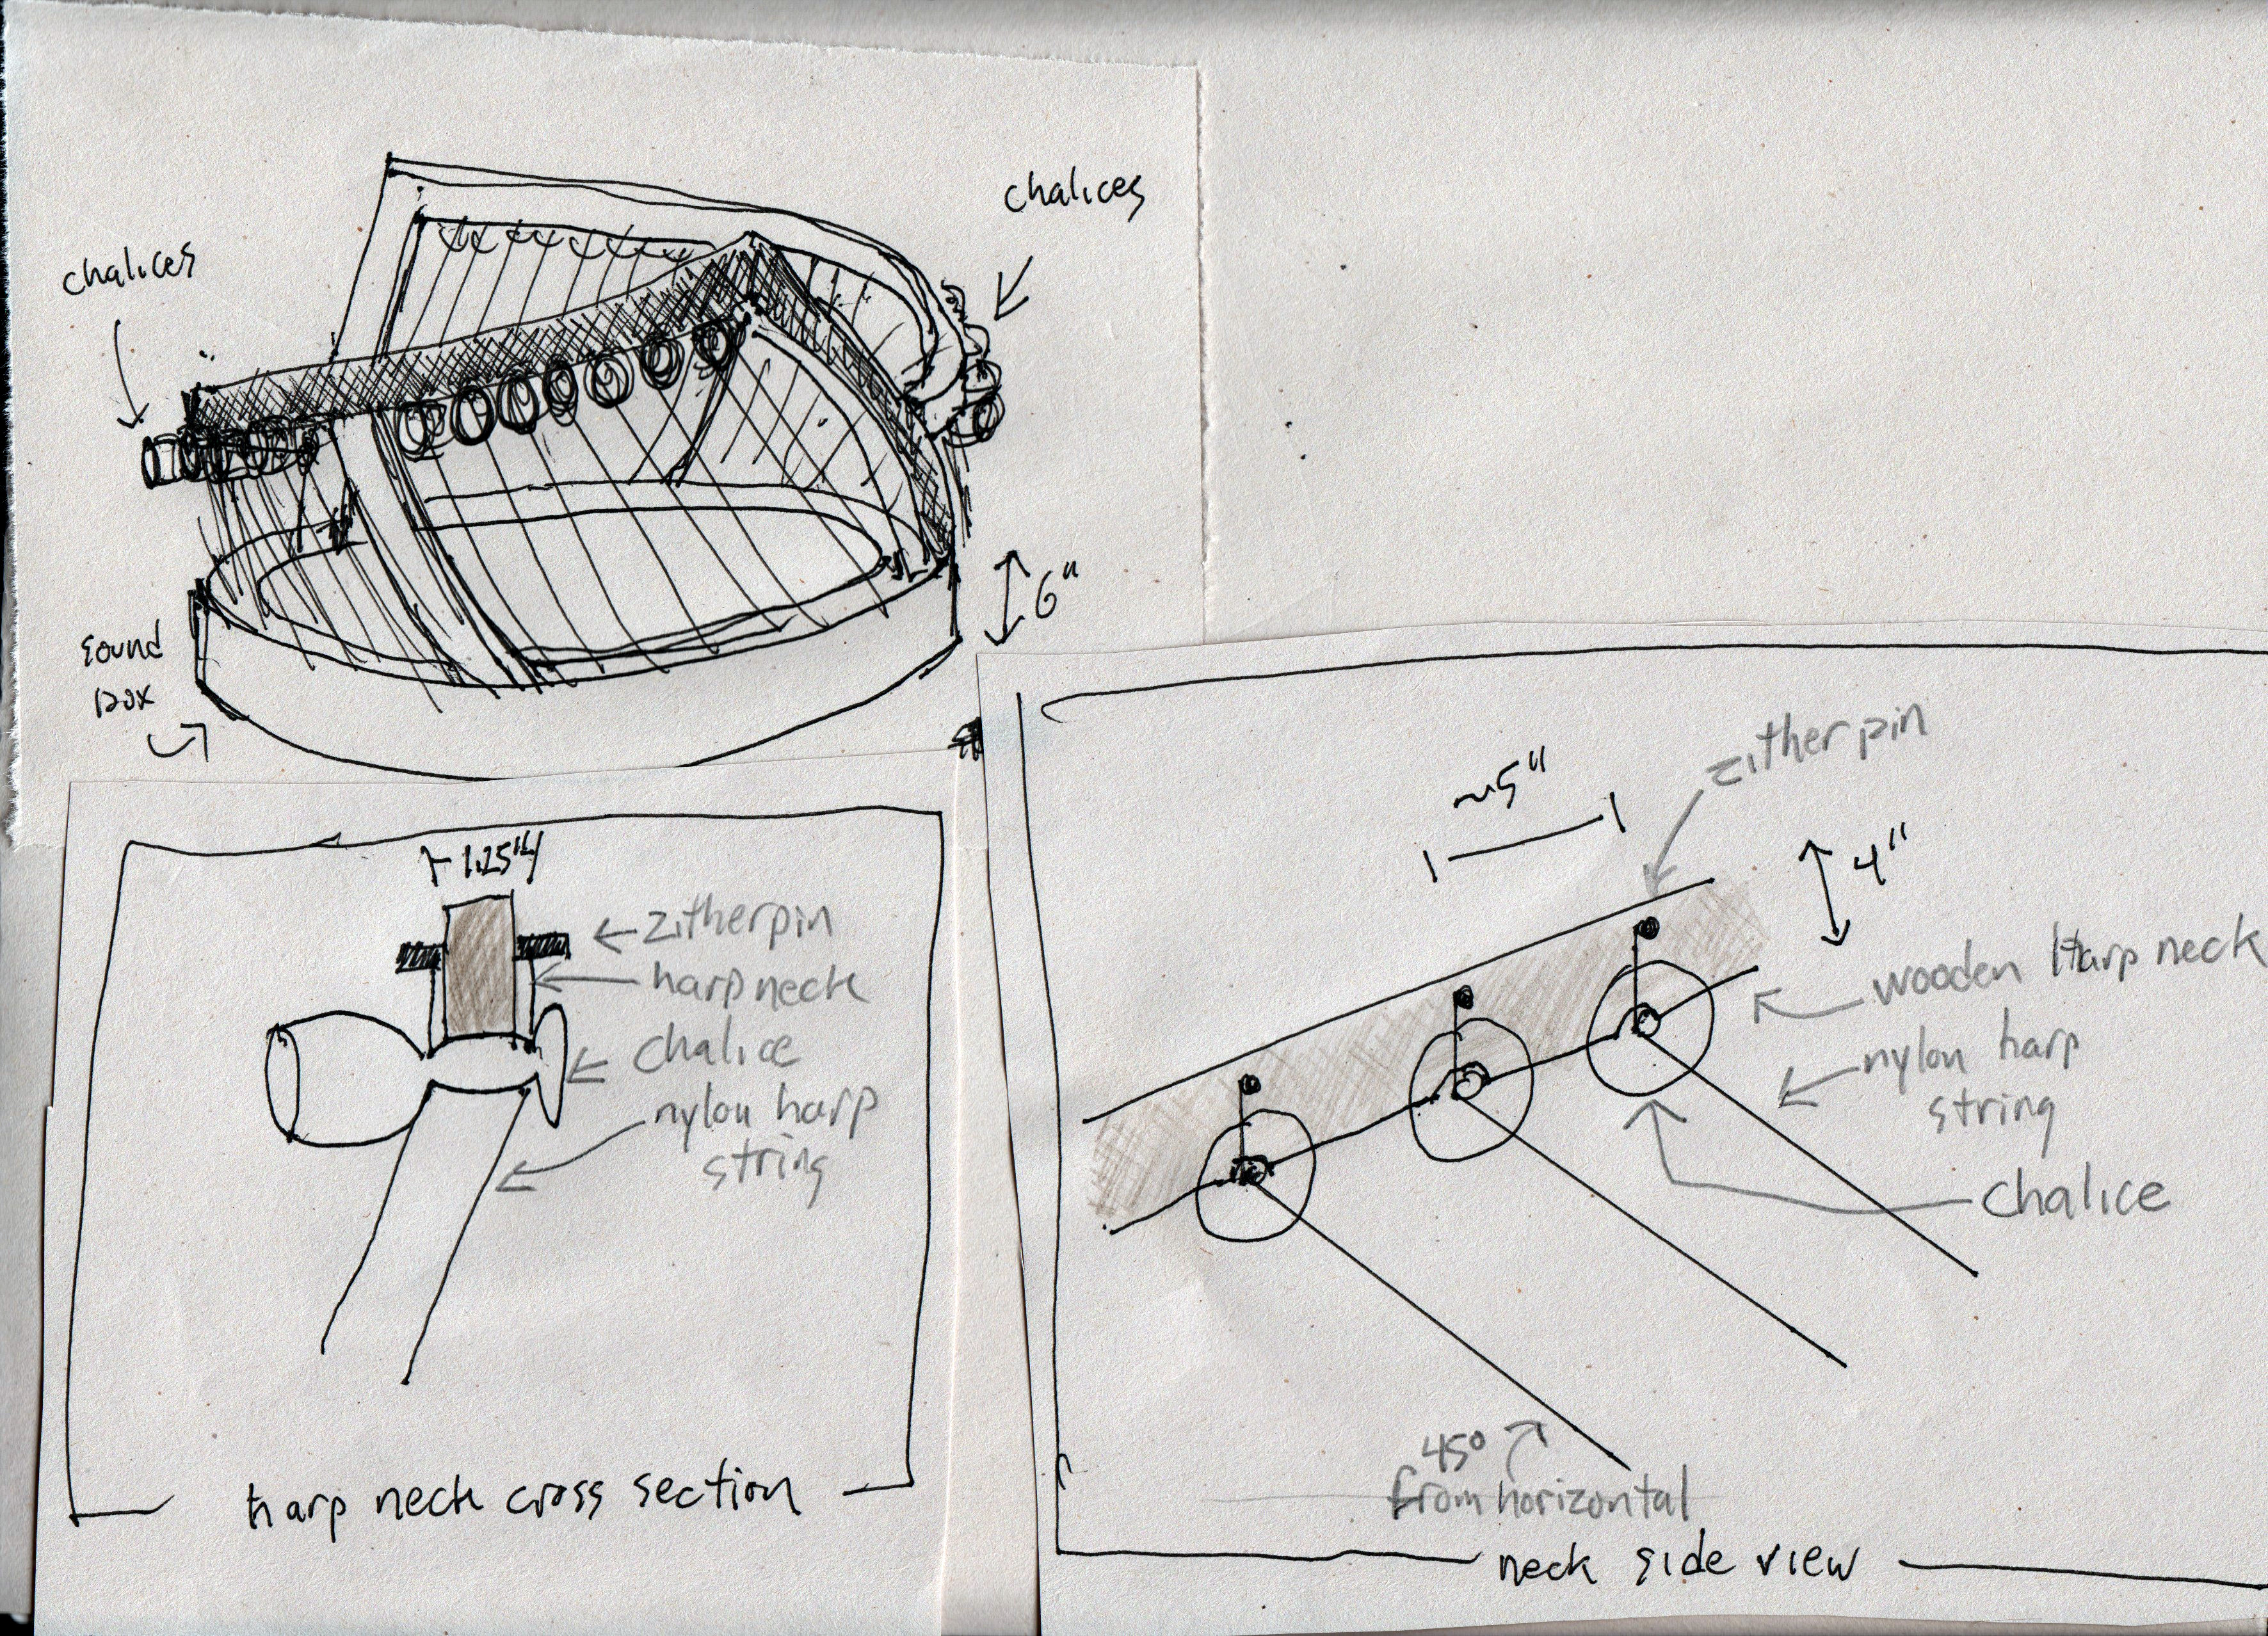 chalices
chalices
6"
sound
box
1.25"
zitherpin
harp neck
chalice
nylon harp
string
harp neck cross section
~5"
zither pin
4"
wooden Harp neck
nylon harp
string
chalice
45°
from horizontal
neck side view